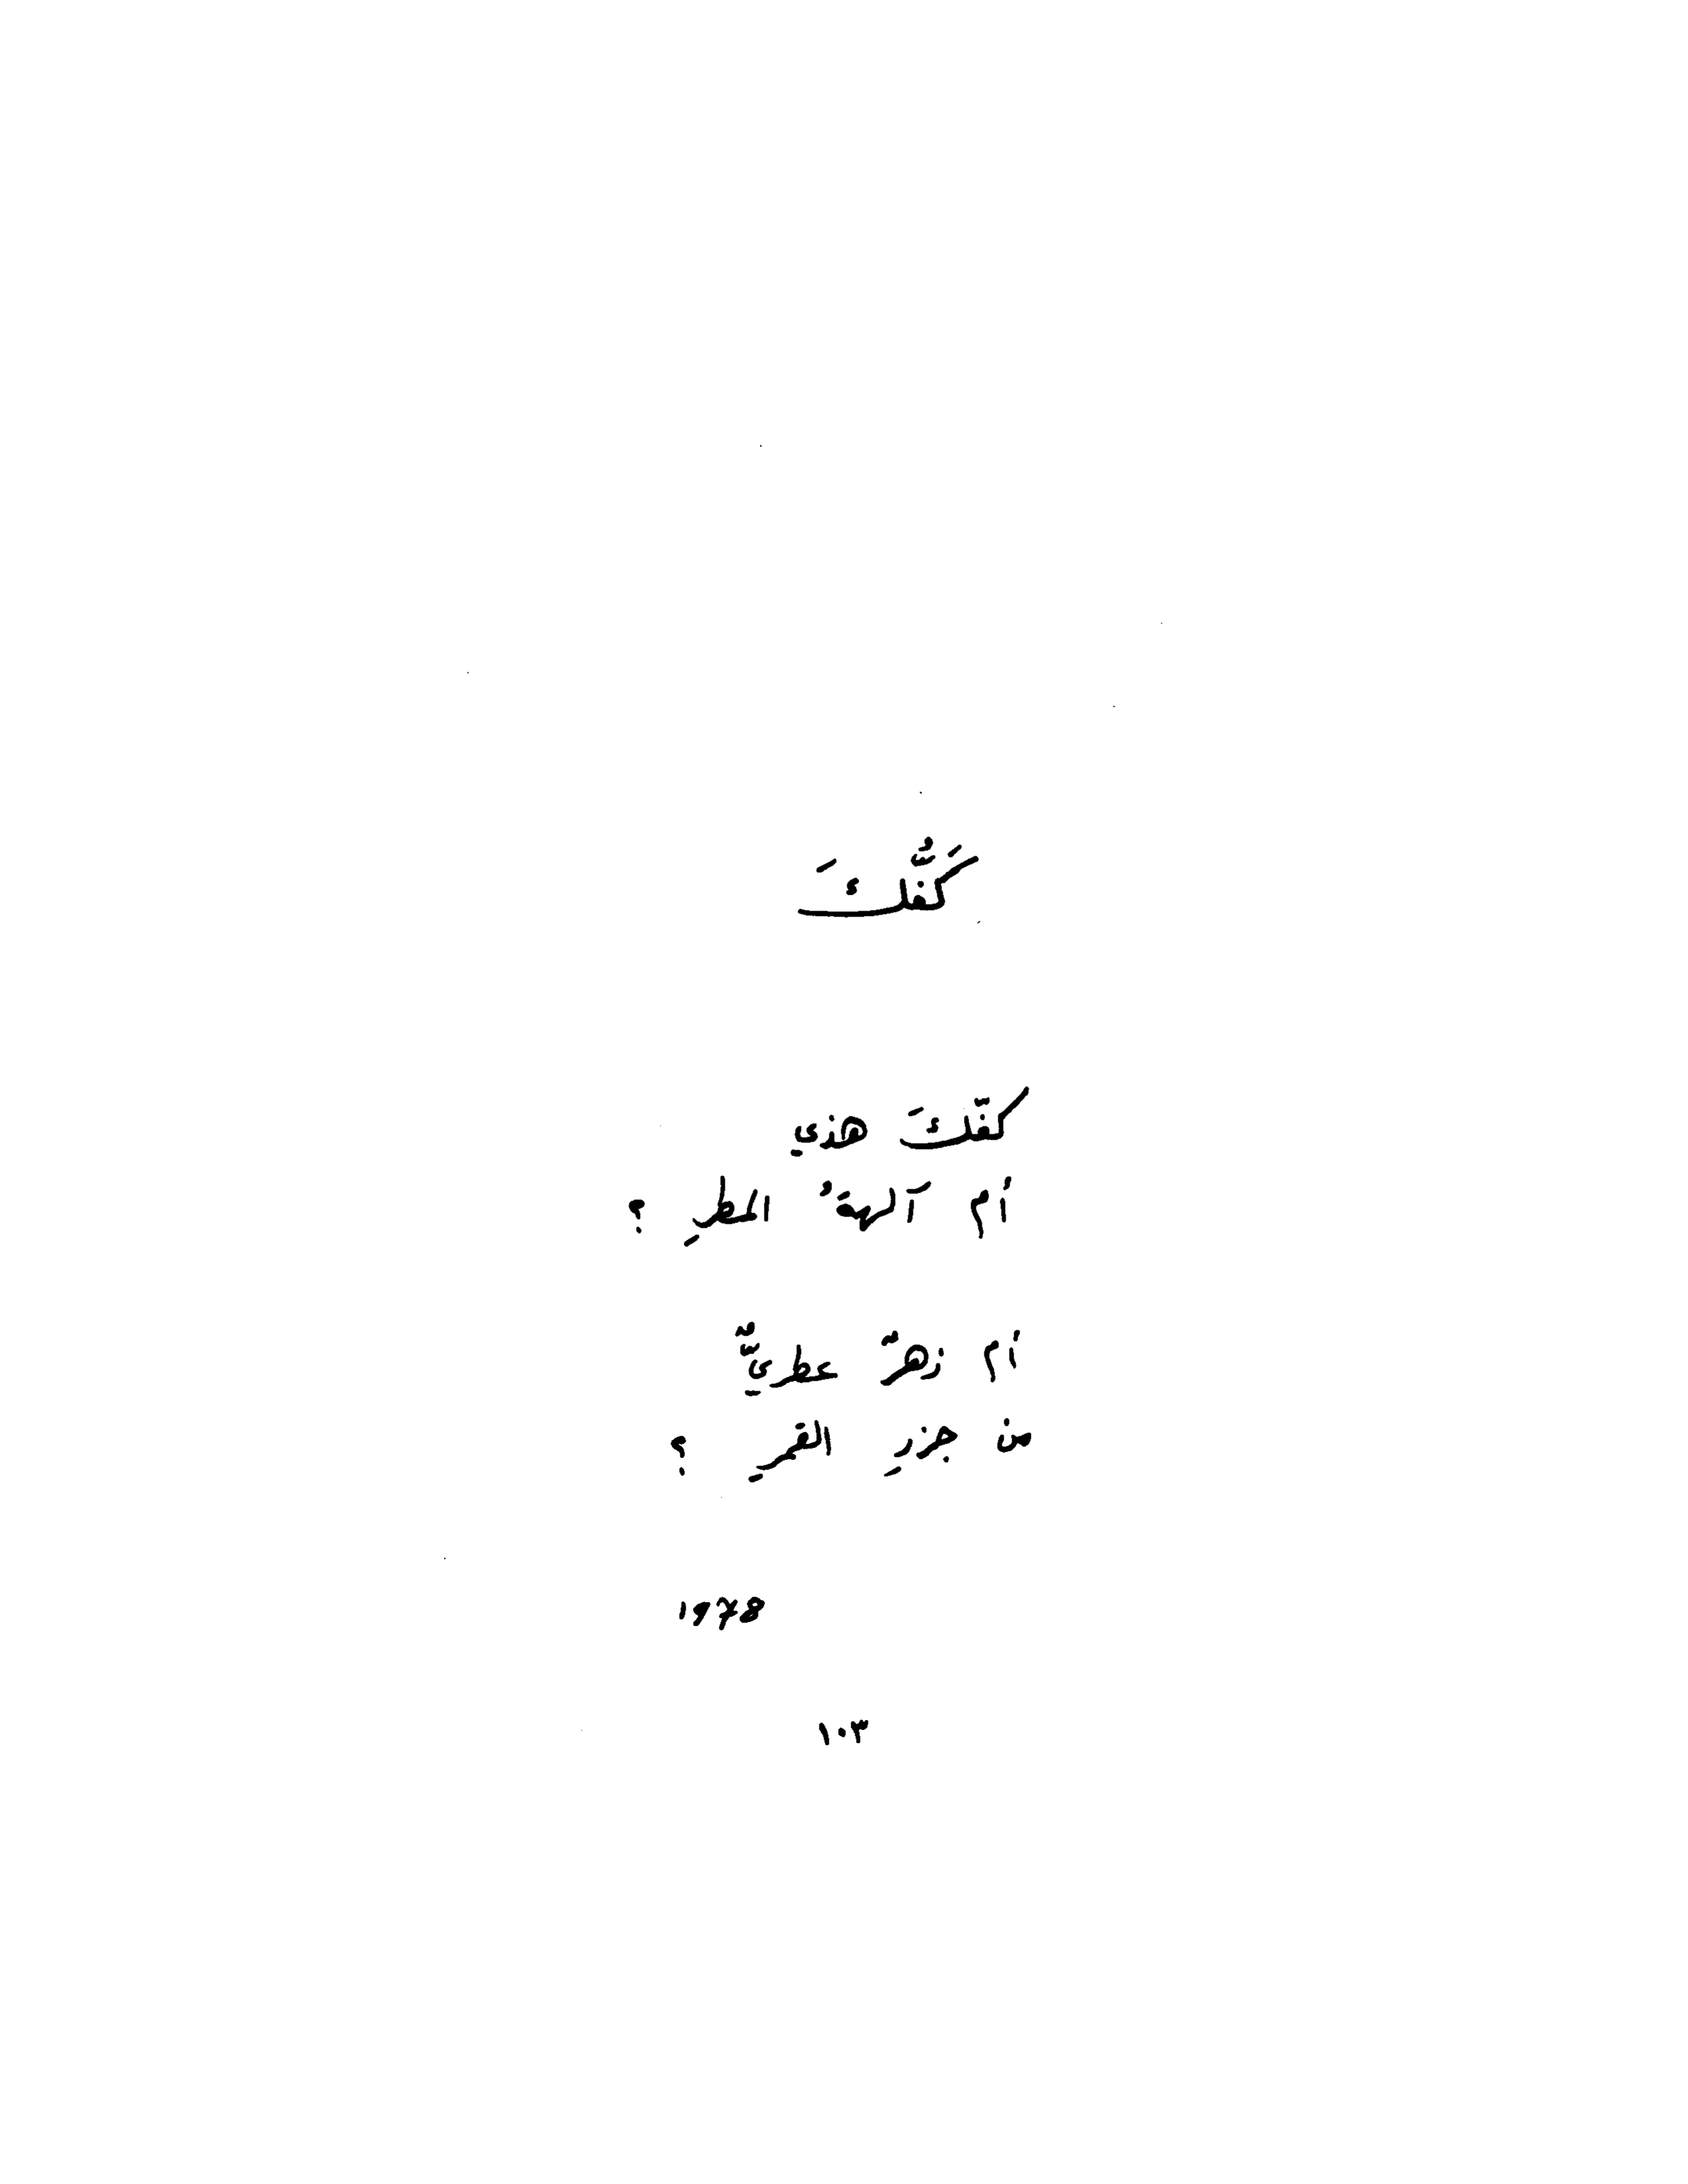 كَفُّكَ
كفّكَ هذي
أم آلهةُ المطرِ ؟
أم زهرٌ عطريٌّ
من جزرِ القمرِ ؟
1978
١٠٣